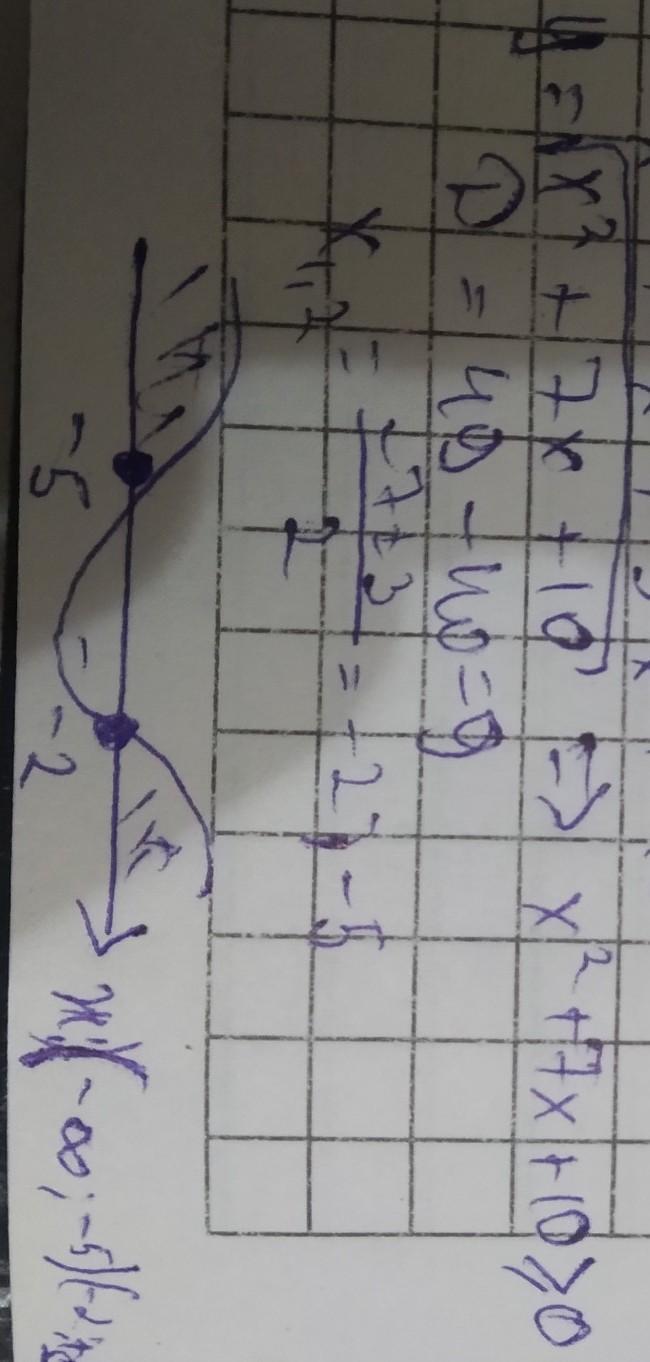 y = √x² + 7x + 10 => x² + 7x + 10 ≥ 0
D = 49 - 40 = 9
x₁,₂ = (-7 ± 3)/2 = -2; -5
+ - +
-5 -2
(-∞; -5)(-2; +